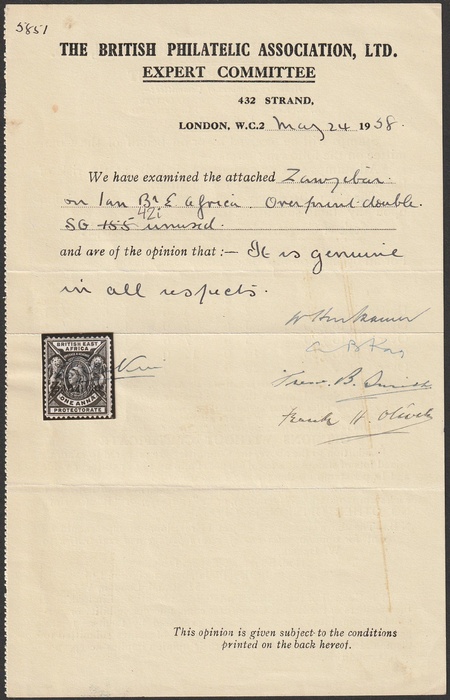 5851
THE BRITISH PHILATELIC ASSOCIATION, LTD.
EXPERT COMMITTEE
432 STRAND,
LONDON, W.C.2 May 24 1938.
We have examined the attached Zanzibar
on 1an Br E Africa. Overprint double.
42i
SG 155 unused.
and are of the opinion that :— It is genuine
in all respects.
BRITISH EAST
AFRICA
ONE ANNA
PROTECTORATE
Frank H. Oliver
This opinion is given subject to the conditions
printed on the back hereof.